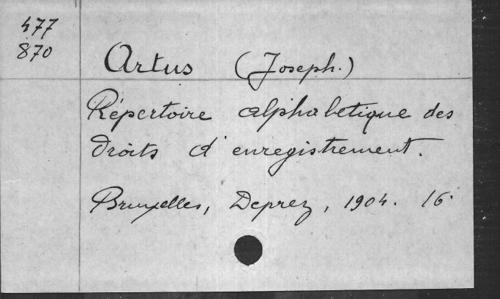 477
870
Artus (Joseph.)
Répertoire alphabetique des
droits d'enregistrement.
Bruxelles, Deprez, 1904. 16°